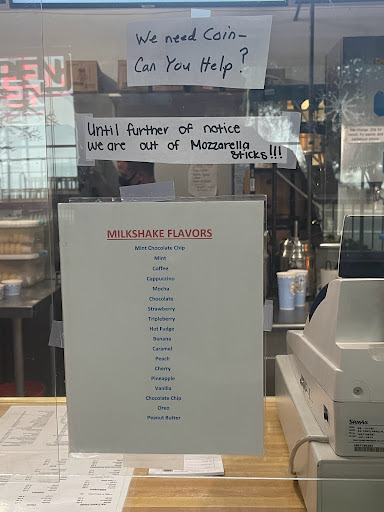 We need Coin-
Can You Help?
Until further of notice
we are out of Mozzarella
sticks!!!
MILKSHAKE FLAVORS
Mint Chocolate Chip
Mint
Coffee
Cappuccino
Mocha
Chocolate
Strawberry
Tripleberry
Hot Fudge
Banana
Caramel
Peach
Cherry
Pineapple
Vanilla
Chocolate Chip
Oreo
Peanut Butter
Sam4s